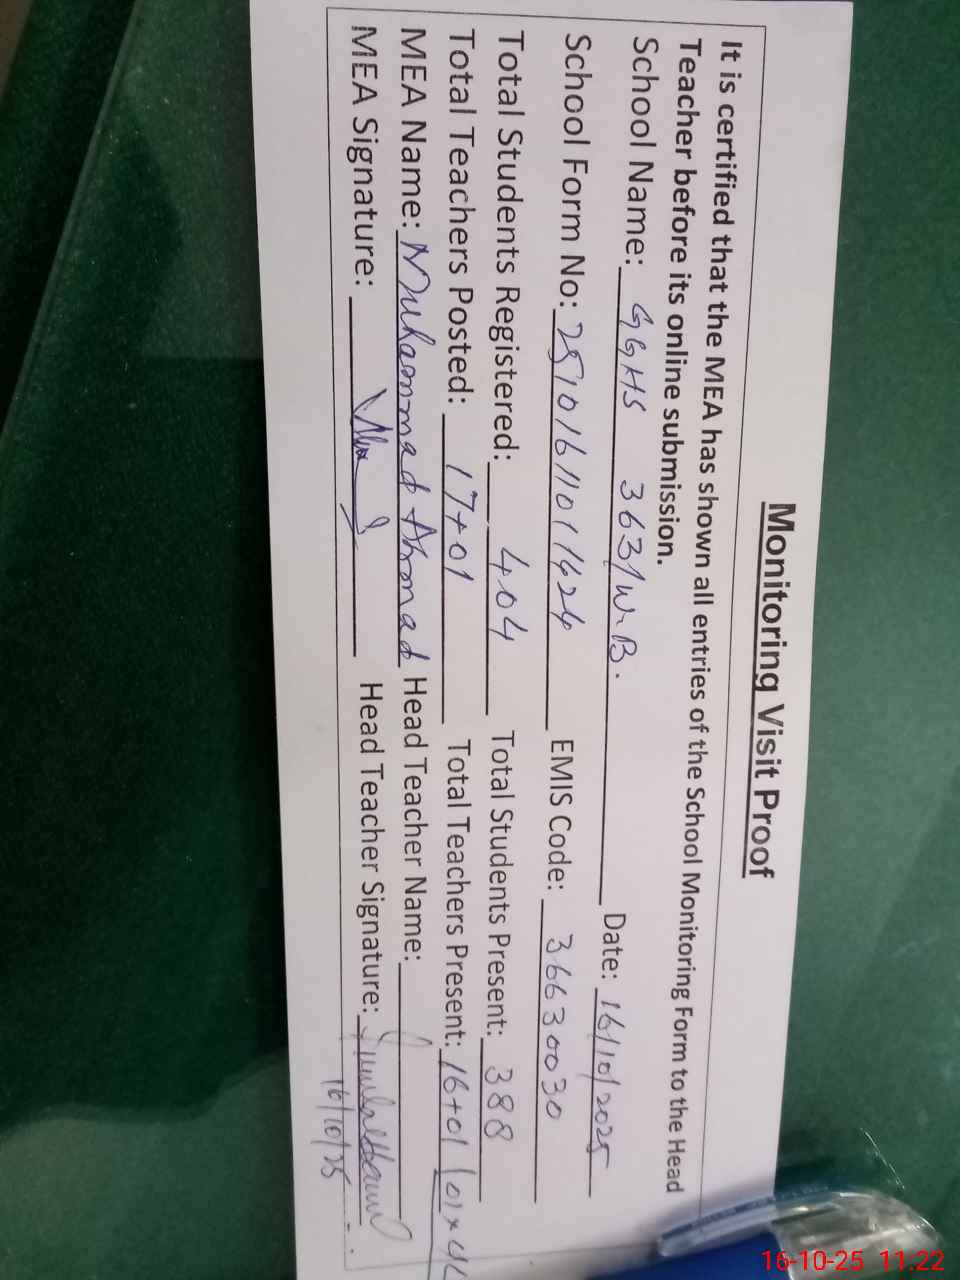 Monitoring Visit Proof
It is certified that the MEA has shown all entries of the School Monitoring Form to the Head
Teacher before its online submission.
School Name: GGHS 363/W.B. Date: 16/10/2025
School Form No: 25101611011424 EMIS Code: 36630030
Total Students Registered: 404 Total Students Present: 388
Total Teachers Posted: 17+01 Total Teachers Present: 16+01
MEA Name: Muhammad Ahmad Head Teacher Name:
MEA Signature: Head Teacher Signature:
16/10/25
16-10-25 11:22